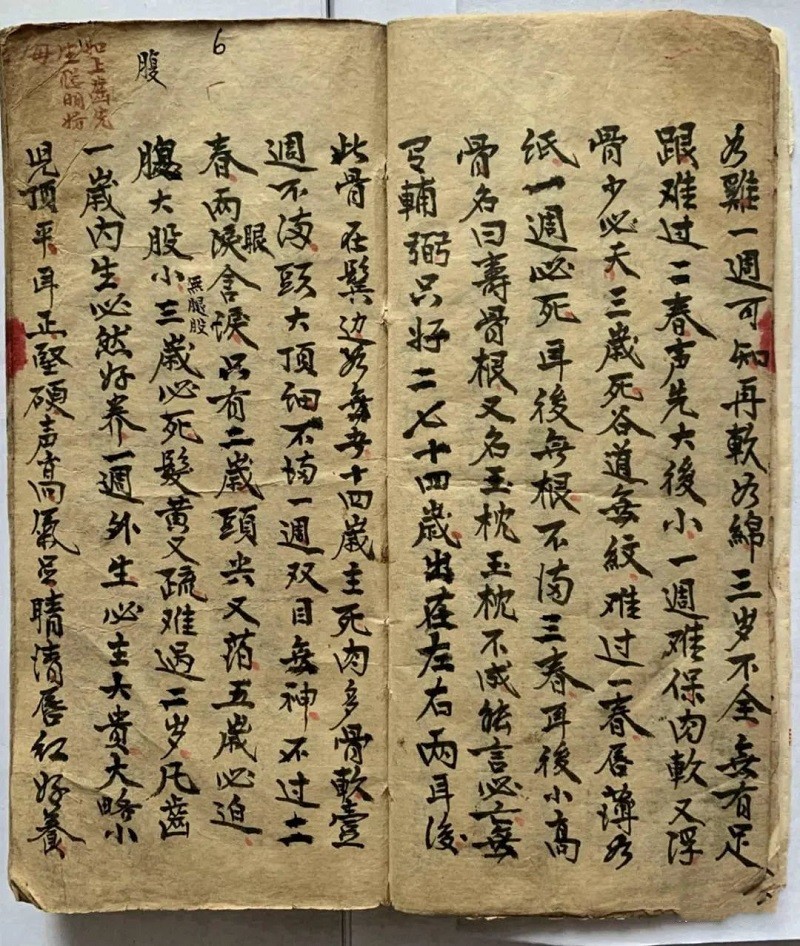 为雞一週可知再軟如綿三岁不全無有足
跟难过二春声先大後小一週难保肉軟又浮
骨少必夭三歲死谷道無紋难过一春唇薄如
纸一週必死耳後無根不满三春耳後小高
骨名曰壽骨根又名玉枕玉枕不成能言必亡無
輔弼只好二七十四歲出在左右兩耳後
此骨在鬓边如無者十四歲主死肉多骨軟壹
週不满頭大頂细不满一週双目無神不过二
春兩眼含淚只有二歲頭尖又萡五歲必迫
無腿股
腹大股小三歲必死髮黄又疏难過二岁凡齒
一歲内生必然好养一週外生必主大贵大略小
児頂平耳正堅硬声高氣足睛清唇红好養
6
腹
如上齒先
生聪明好
母